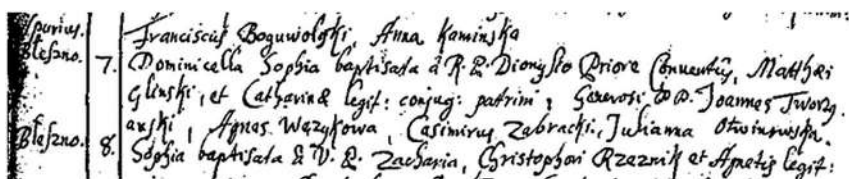 Spurius. Franciscus Boguwolski, Anna Kaminska
Bleszno. 7. Dominicella Sophia baptisata à R. P. Dionysio Priore Conventûs, Matthæi
Glinski, et Catharinæ legit: conjug: patrini, Generosi DD. Joannes Tworzy.
anski, Agnes Wązykowa, Casimirus Zabracki, Julianna Otwinowska.
Bleszno. 8. Sophia baptisata à V. P. Zacharia, Christophori Rzeznik et Agnetis legit: